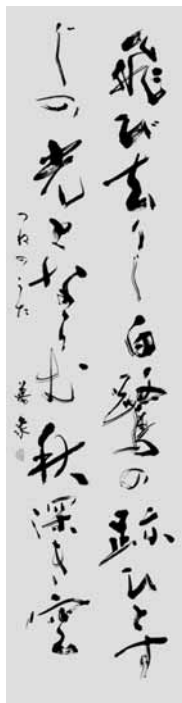 飛び去りし白鷺の跡ひとす
じの光となりむ秋深き空
つねのうた